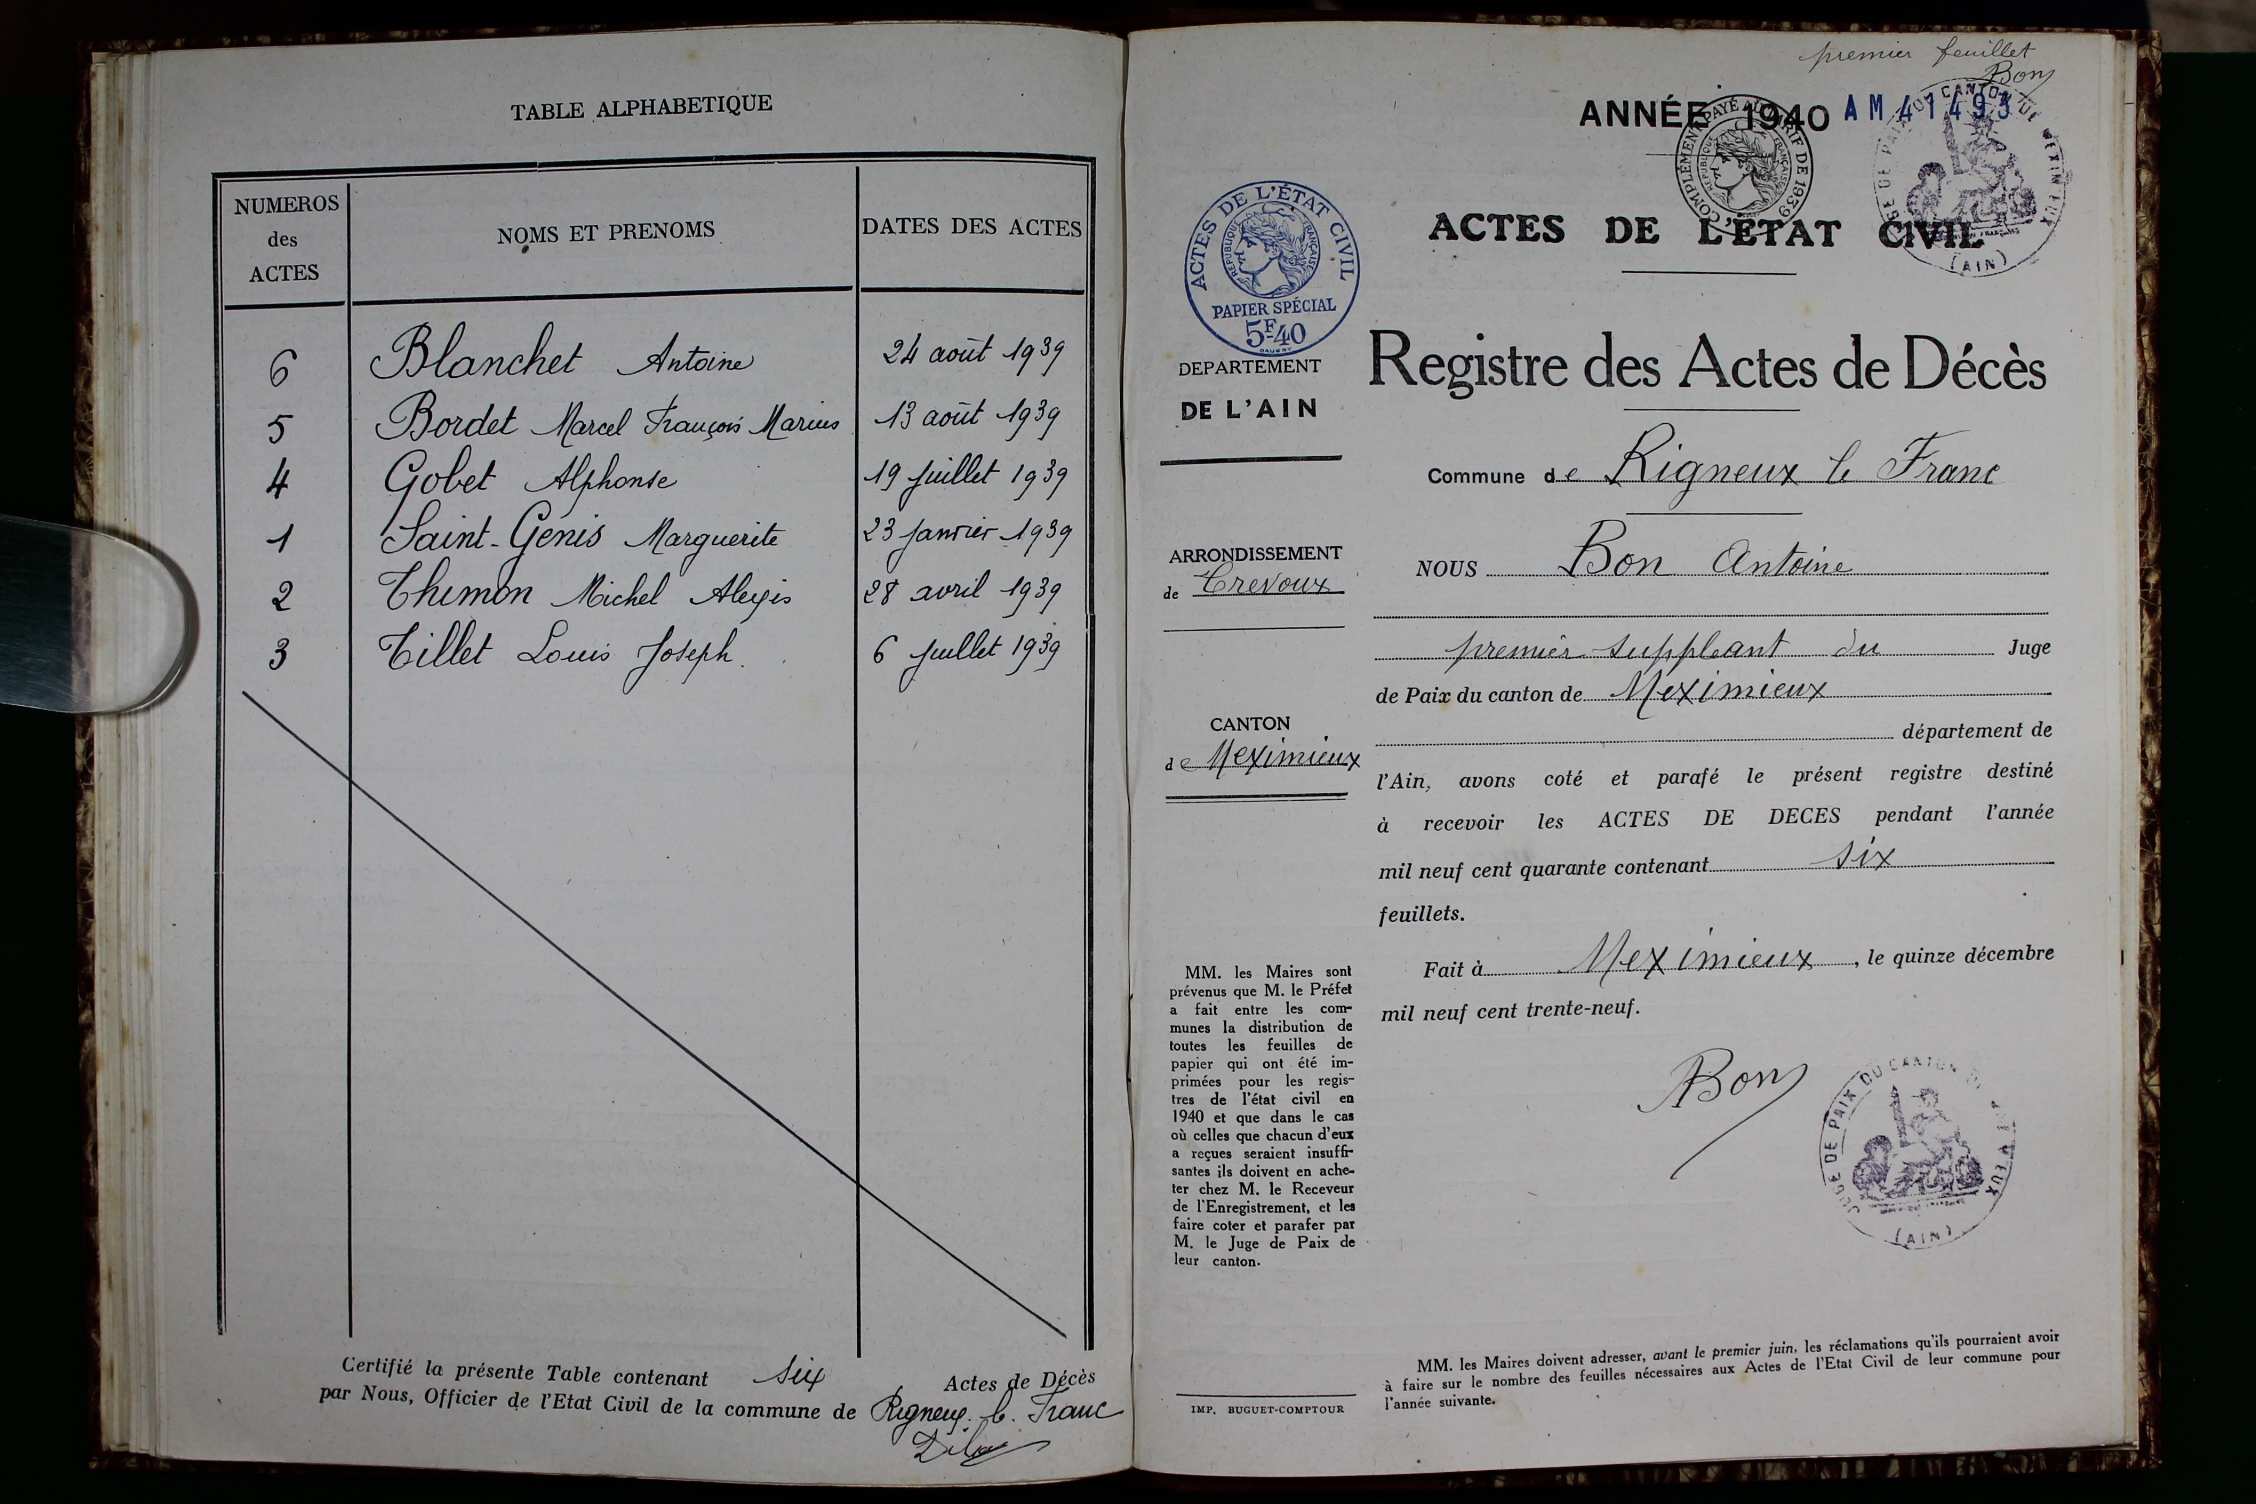 TABLE ALPHABETIQUE
NUMEROS
des
ACTES
NOMS ET PRENOMS
DATES DES ACTES
6 Blanchet Antoine 24 août 1939
5 Bordet Marcel François Marius 13 août 1939
4 Gobet Alphonse 19 juillet 1939
1 Saint-Genis Marguerite 23 janvier 1939
2 Thimon Michel Alexis 28 avril 1939
3 Tillet Louis Joseph 6 juillet 1939
Certifié la présente Table contenant six Actes de Décès
par Nous, Officier de l'Etat Civil de la commune de Rigneux le Franc
premier feuillet
Bon
ANNÉE 1940 AM 41493
COMPLÉMENT PAYÉ AU TARIF DE 1939
RÉPUBLIQUE FRANÇAISE
JUGE DE PAIX DU CANTON DE MEXIMIEUX
(AIN)
ACTES DE L'ÉTAT CIVIL
RÉPUBLIQUE FRANÇAISE
PAPIER SPÉCIAL
5F40
ACTES DE L'ÉTAT CIVIL
Registre des Actes de Décès
DEPARTEMENT
DE L'AIN
ARRONDISSEMENT
de Trevoux
CANTON
de Meximieux
Commune de Rigneux le Franc
NOUS Bon Antoine
premier suppleant du Juge
de Paix du canton de Meximieux
département de
l'Ain, avons coté et parafé le présent registre destiné
à recevoir les ACTES DE DECES pendant l'année
mil neuf cent quarante contenant six
feuillets.
Fait à Meximieux, le quinze décembre
mil neuf cent trente-neuf.
Bon
JUGE DE PAIX DU CANTON DE MEXIMIEUX
(AIN)
MM. les Maires sont
prévenus que M. le Préfet
a fait entre les com-
munes la distribution de
toutes les feuilles de
papier qui ont été im-
primées pour les regis-
tres de l'état civil en
1940 et que dans le cas
où celles que chacun d'eux
a reçues seraient insuffi-
santes ils doivent en ache-
ter chez M. le Receveur
de l'Enregistrement, et les
faire coter et parafer par
M. le Juge de Paix de
leur canton.
IMP. BUGUET-COMPTOUR
MM. les Maires doivent adresser, avant le premier juin, les réclamations qu'ils pourraient avoir
à faire sur le nombre des feuilles nécessaires aux Actes de l'Etat Civil de leur commune pour
l'année suivante.